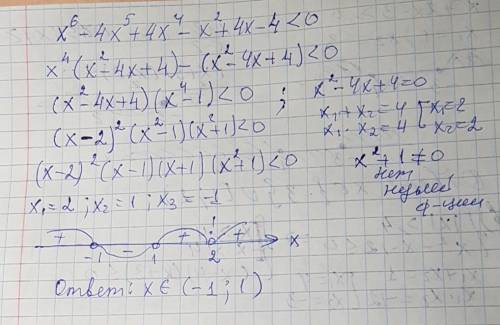 x⁶ - 4x⁵ + 4x⁴ - x² + 4x - 4 < 0
x⁴(x² - 4x + 4) - (x² - 4x + 4) < 0
(x² - 4x + 4)(x⁴ - 1) < 0 ; x² - 4x + 4 = 0
x₁ + x₂ = 4 { x₁ = 2
(x - 2)²(x² - 1)(x² + 1) < 0 x₁ · x₂ = 4 { x₂ = 2
(x - 2)²(x - 1)(x + 1)(x² + 1) < 0 x² + 1 ≠ 0
нет
нулей
ф-ции
x₁ = 2 ; x₂ = 1 ; x₃ = -1
+ - + + x
-1 1 2
Ответ: x ∈ (-1; 1)